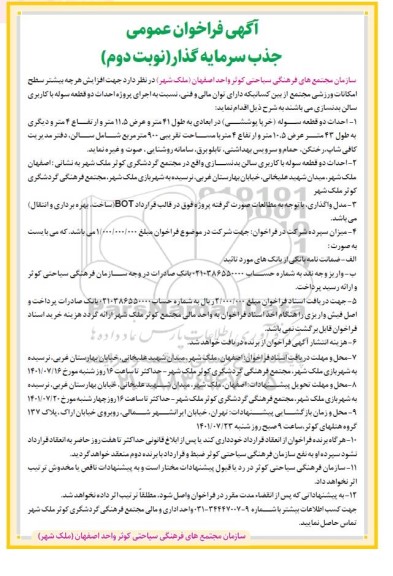 آگهی فراخوان عمومی
جذب سرمایه گذار (نوبت دوم)
سازمان مجتمع های فرهنگی سیاحتی کوثر واحد اصفهان (ملک شهر) در نظر دارد جهت افزایش هر چه بیشتر سطح
امکانات ورزشی مجتمع از بین کسانیکه دارای توان مالی و فنی، نسبت به اجرای پروژه احداث دو قطعه سوله با کاربری
سالن بدنسازی می باشند به شرح ذیل اقدام نماید:
۱- احداث دو قطعه سوله (خرپا پوششی) در ابعادی به طول ۴۱ متر و عرض ۱۱.۵ متر و ارتفاع ۴ متر و دیگری
به طول ۴۳ متر عرض ۱۰.۵ متر و ارتفاع ۴ متر با مساحت تقریبی ۹۰۰ متر مربع شامل سالن، دفتر مدیریت
کافی شاپ، رختکن، حمام و سرویس بهداشتی، تابلو برق، سامانه روشنایی، صوت و غیره نماید.
۲- احداث دو قطعه سوله با کاربری سالن بدنسازی واقع در مجتمع گردشگری کوثر ملک شهر به نشانی: اصفهان
ملک شهر، میدان شهید علیخانی، خیابان بهارستان غربی، نرسیده به شهربازی ملک شهر، مجتمع فرهنگی گردشگری
کوثر ملک شهر
۳- مدل واگذاری، با توجه به مطالعات صورت گرفته پروژه فوق در قالب قرارداد BOT (ساخت، بهره برداری و انتقال)
می باشد.
۴- میزان سپرده شرکت در فراخوان: جهت شرکت در موضوع فراخوان مبلغ ۱/۰۰۰/۰۰۰/۰۰۰ می باشد. که می بایست
به صورت:
الف- ضمانت نامه بانکی از بانک های مورد تائید
ب- واریز وجه نقد به شماره حساب ۰۲۱۰۳۸۶۵۵۰۰۰۰ بانک صادرات در وجه سازمان فرهنگی سیاحتی کوثر
و ارائه رسید پرداخت.
۵- جهت دریافت اسناد فراخوان مبلغ ۲/۰۰۰/۰۰۰ ریال به شماره حساب ۰۲۱۰۳۸۶۵۵۰۰۰۰ بانک صادرات پرداخت و
اصل فیش واریزی را هنگام اخذ اسناد فراخوان به واحد مالی مجتمع کوثر ملک شهر ارائه گردد هزینه خرید اسناد
فراخوان قابل برگشت نمی باشد.
۶- هزینه انتشار آگهی فراخوان از برنده دریافت خواهد شد.
۷- محل و مهلت دریافت اسناد فراخوان: اصفهان، ملک شهر، میدان شهید علیخانی، خیابان بهارستان غربی، نرسیده
به شهربازی ملک شهر، مجتمع فرهنگی گردشگری کوثر ملک شهر – حداکثر تا ساعت ۱۶ روز شنبه مورخ ۱۴۰۱/۰۷/۱۶
۸- محل و مهلت تحویل پیشنهادات: اصفهان، ملک شهر، میدان شهید علیخانی، خیابان بهارستان غربی، نرسیده
به شهربازی ملک شهر، مجتمع فرهنگی گردشگری کوثر ملک شهر – حداکثر تا ساعت ۱۶ روز چهارشنبه مورخ ۱۴۰۱/۰۷/۲۰
۹- محل و زمان بازگشایی پیشنهادات: تهران، خیابان ایرانشهر شمالی، روبروی خیابان اراک، پلاک ۱۳۷
گروه هتلهای کوثر، ساعت ۹ صبح روز شنبه ۱۴۰۱/۰۷/۲۳
۱۰- هرگاه برنده فراخوان از انعقاد قرارداد خودداری کند یا پس از ابلاغ قانونی حداکثر تا هفت روز حاضر به انعقاد قرارداد
نشود سپرده او به نفع سازمان فرهنگی سیاحتی کوثر ضبط و قرارداد با برنده دوم منعقد خواهد گردید.
۱۱- سازمان فرهنگی سیاحتی کوثر در رد یا قبول پیشنهادات مختار است و به پیشنهادات ناقص یا مخدوش ترتیب
اثر نخواهد داد.
۱۲- به پیشنهاداتی که پس از انقضاء مدت مقرر در فراخوان واصل شود، مطلقاً ترتیب اثر داده نخواهد شد.
جهت کسب اطلاعات بیشتر با شماره ۹-۰۳۱-۳۴۴۴۷۰۰۷ واحد اداری و مالی مجتمع فرهنگی گردشگری کوثر ملک شهر
تماس حاصل نمایید.
سازمان مجتمع های فرهنگی سیاحتی کوثر واحد اصفهان (ملک شهر)